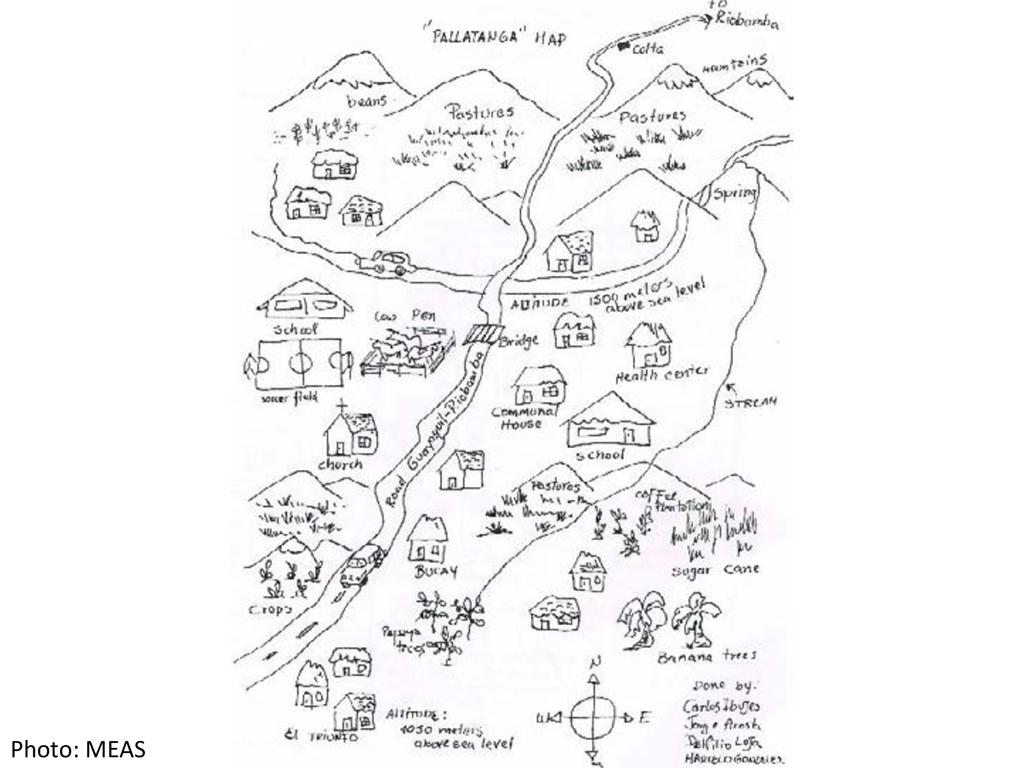 "PALLATANGA" MAP
TO
Riobamba
Colta
mountains
beans
Pastures
Pastures
Spring
ALTITUDE 1500 meters
above sea level
School
Cow Pen
Bridge
Health center
soccer field
Communal
House
STREAM
church
School
Road Guayaquil-Riobamba
Pastures
coffee
Plantation
Sugar cane
BUCAY
crops
Papaya
trees
Banana trees
N
W
E
El TRIUNFO
ALTITUDE:
1050 meters
above sea level
Done by:
Carlos
MARCELO GONZALES
Photo: MEAS